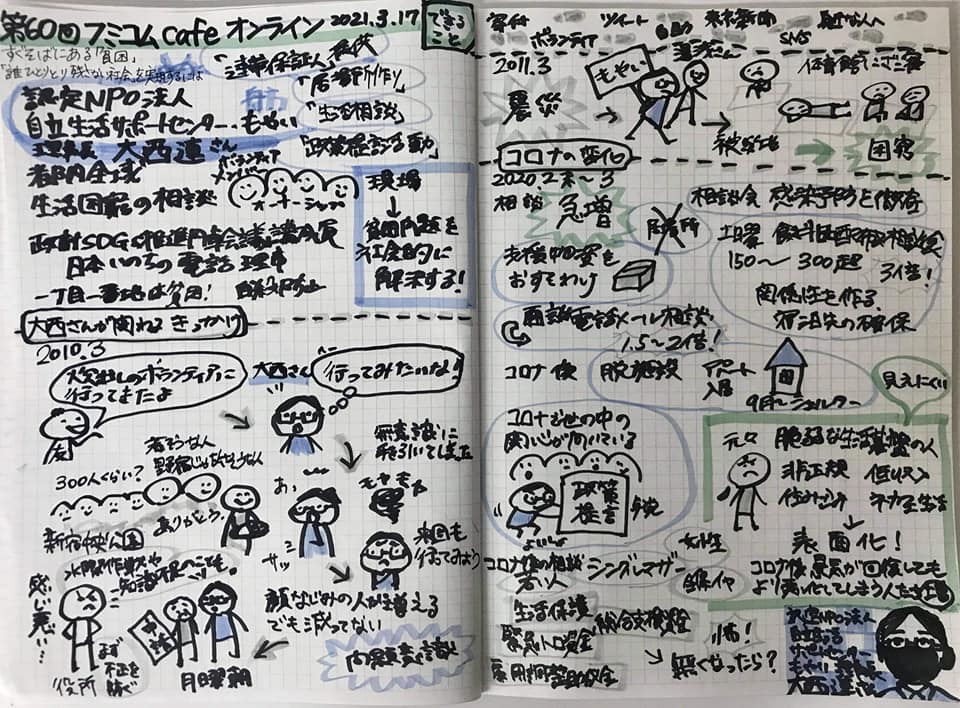 第60回フミコムcafeオンライン 2021.3.17
すぐそばにある「貧困」
「誰ひとりとり残さない社会」を実現するには
認定NPO法人
自立生活サポートセンター・もやい
理事長 大西連さん
「連帯保証人」提供
「居場所作り」
「生活相談」
「政策提言活動」
都内全域
生活困窮の相談
ボランティア
メンバー
オーナーシップ
現場
↓
貧困問題を
社会的に
解決する!
政府SDGs推進円卓会議構成員
日本いのちの電話 理事
一丁目一番地は貧困!
大西さんが関わるきっかけ
2010.3
炊き出しのボランティアに
行ってきたよ
友
大西さん
行ってみたいな!
300人くらい?
若そうな人
野宿じゃなさそうな人
新宿中央公園
ありがとう。
あ、
サッ
モヤモヤ
次回も
行ってみよう
感じ悪い…
役所
まず
不正を
防ぐ
申請
月曜朝
顔なじみの人が増える
でも減ってない
問題意識
できる
こと
寄付
ボランティア
ツイート
東京新聞
SNS
身近な人へ
2011.3
震災
もやい
被災地
体育館にざこ寝
困窮
コロナの変化
2020 2末〜3
相談
急増
居場所
支援物資を
おすそわけ
面談→電話メール相談
1.5〜2倍!
相談会 感染予防と
土曜 飲料配布相談
150〜300超
3倍!
関係性を作る
宿泊先の確保
コロナ後
脱施設
アパート
入居
9月〜シェルター
見えにくい
コロナで世の中の
関心が向いている
政策
提言
よいしょ
元々
脆弱な生活基盤の人
非正規
低収入
ネカフェ生活
↓
表面化!
コロナ後 景気が回復しても
より悪い化してしまう人たち
コロナ後の相談
若い人
シングルマザー
女性
生活保護
緊急小口資金
総合支援資金
雇用調整助成金
怖!
無くなったら?
認定NPO法人
自立生活
サポートセンター
もやい 理事長
大西連さん